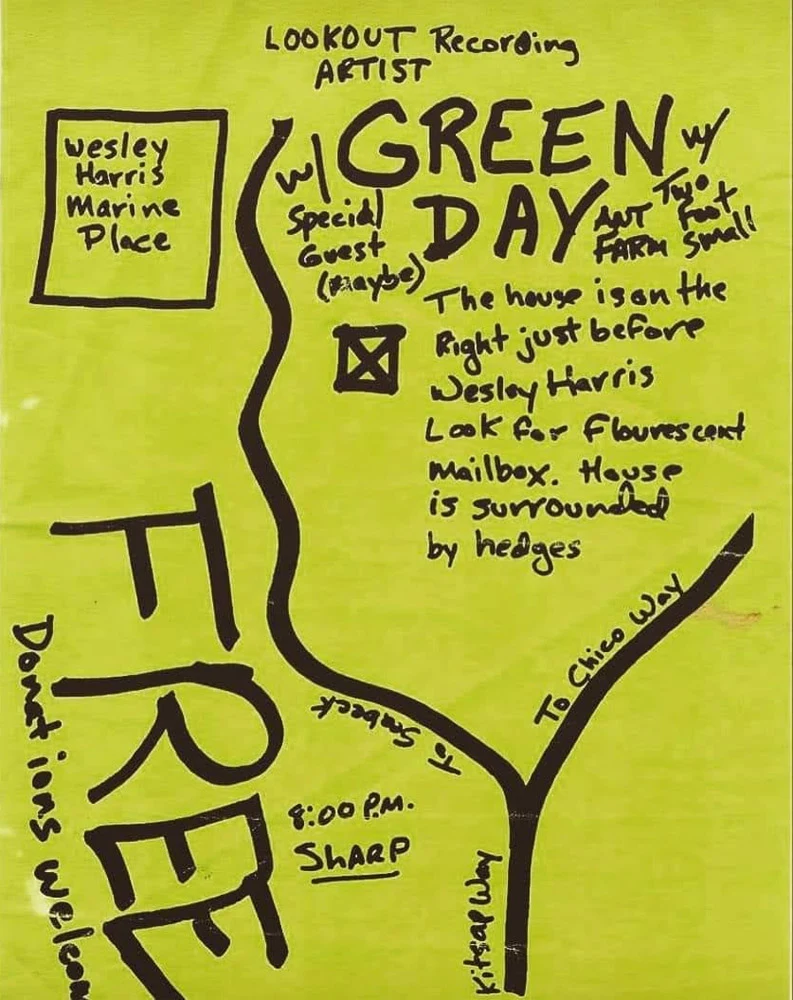 LOOKOUT Recording
ARTIST
GREEN w/
DAY
w/
Special
Guest
(Maybe)
ANT
FARM
Two
Foot
Small
Wesley
Harris
Marine
Place
The house is on the
Right just before
Wesley Harris
Look for Flourescent
Mailbox. House
is surrounded
by hedges
FREE
Donations welcom
To Chico Way
To Seabeck
8:00 P.M.
SHARP
Kitsap Way